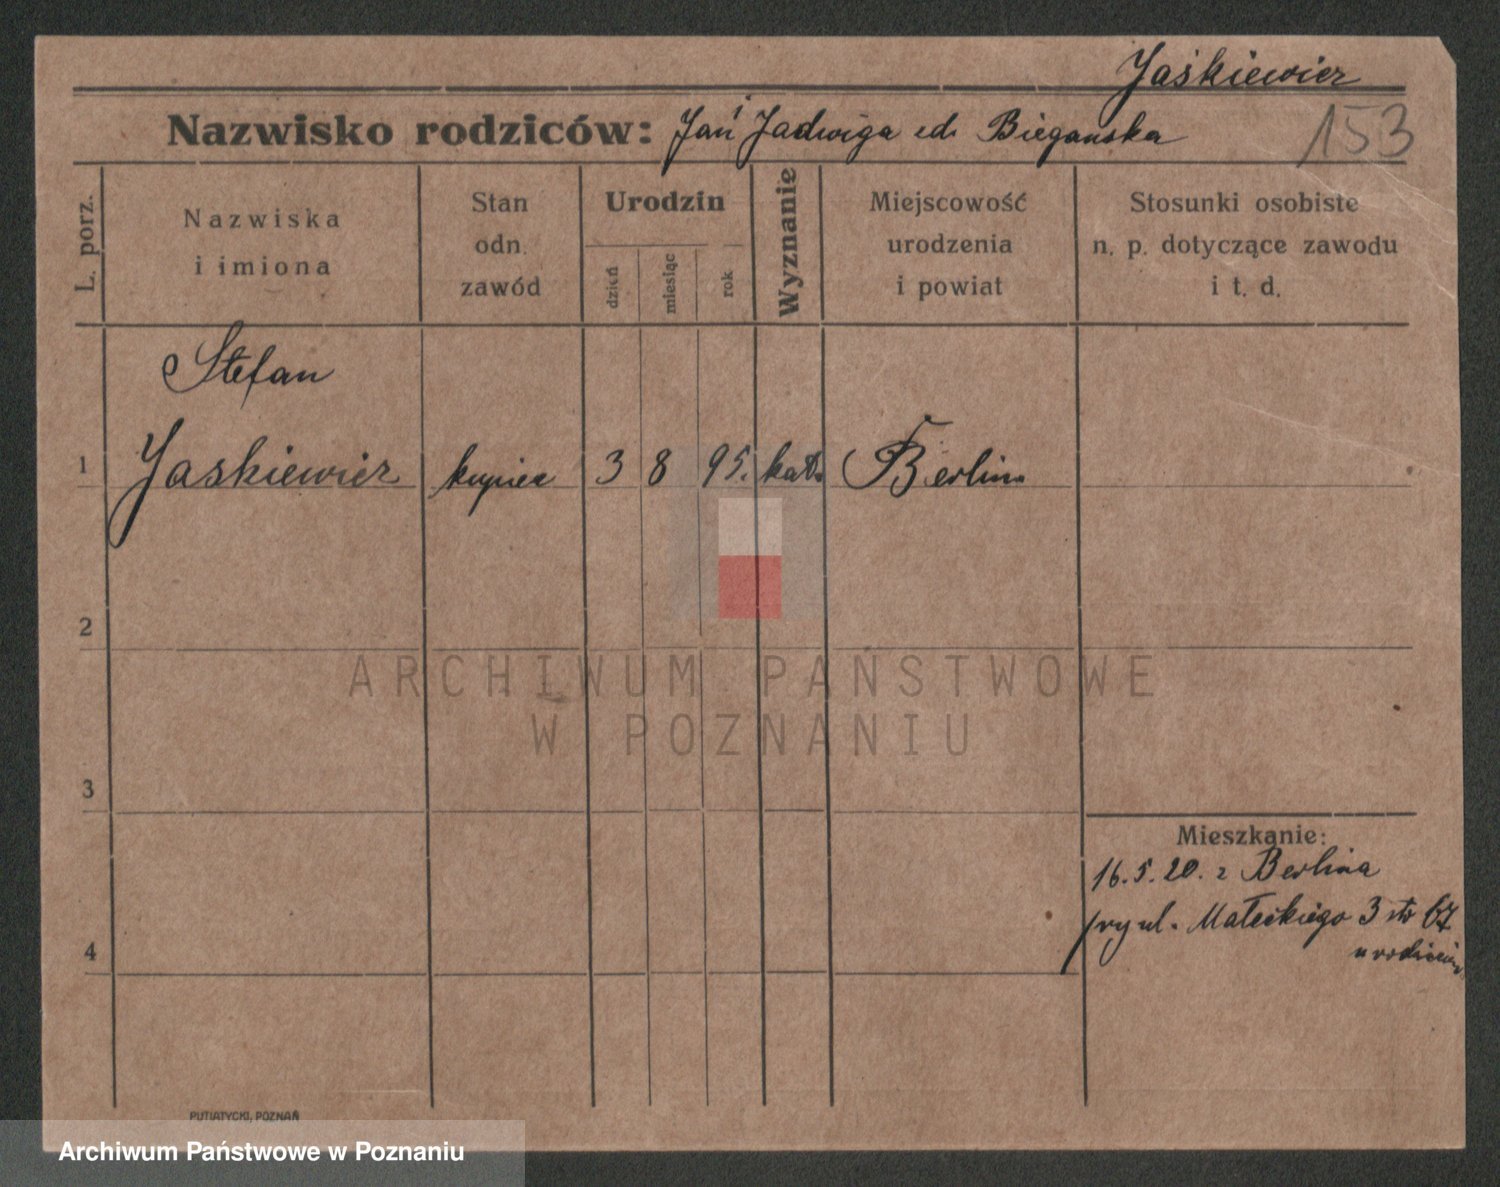 Jaśkiewicz
Nazwisko rodziców: Jan i Jadwiga Biegańska
153
L. porz.
Nazwiska
i imiona
Stan
odn.
zawód
Urodzin
dzień
miesiąc
rok
Wyznanie
Miejscowość
urodzenia
i powiat
Stosunki osobiste
n. p. dotyczące zawodu
i t. d.
Stefan
1 Jaskiewicz kupiec 3 8 95. kat. Berlin
2
ARCHIWUM PAŃSTWOWE
W POZNANIU
3
Mieszkanie:
16.5.20. z Berlina
ul. Małeckiego 3 67
u rodziców
4
PUTIATYCKI, POZNAŃ
Archiwum Państwowe w Poznaniu